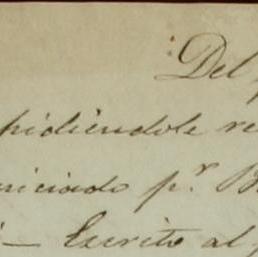 Del
pidiéndole re
niciado p.r B
– Escrito al